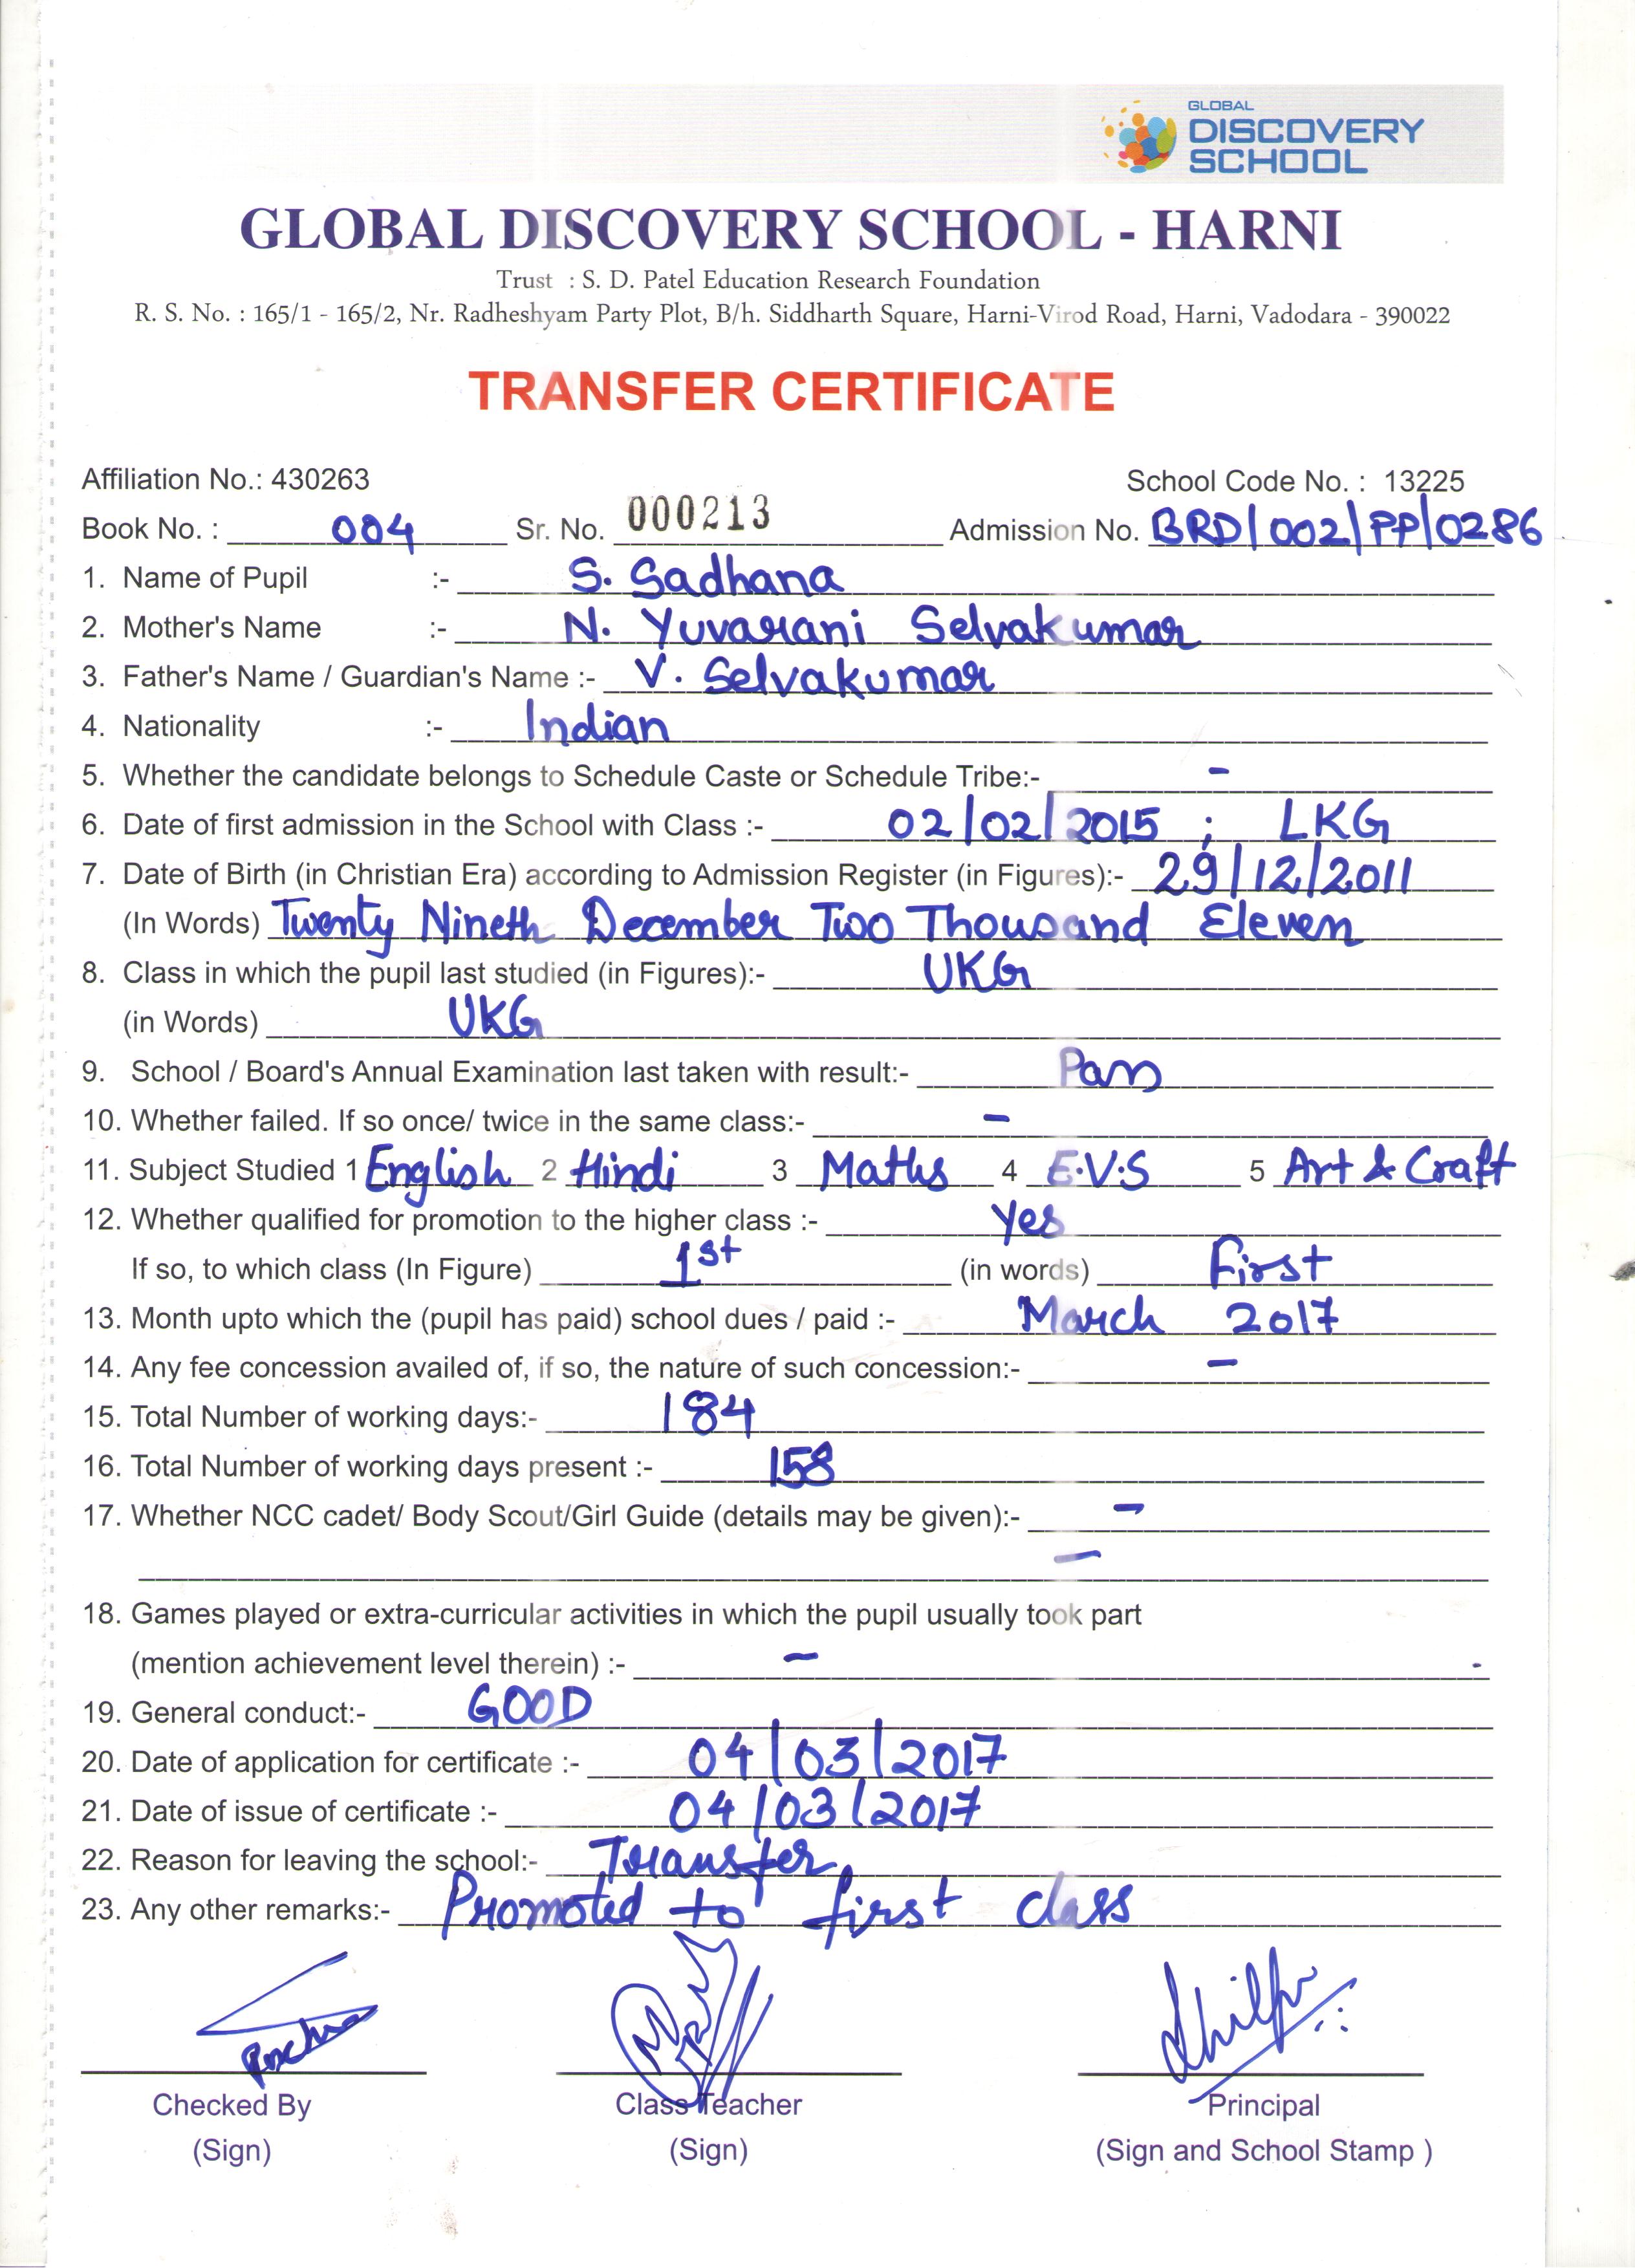 GLOBAL
DISCOVERY
SCHOOL
GLOBAL DISCOVERY SCHOOL - HARNI
Trust : S. D. Patel Education Research Foundation
R. S. No. : 165/1 - 165/2, Nr. Radheshyam Party Plot, B/h. Siddharth Square, Harni-Virod Road, Harni, Vadodara - 390022
TRANSFER CERTIFICATE
Affiliation No.: 430263 School Code No. : 13225
Book No. : 004 Sr. No. 000213 Admission No. BRD/002/PP/0286
1. Name of Pupil :- S. Sadhana
2. Mother's Name :- N. Yuvarani Selvakumar
3. Father's Name / Guardian's Name :- V. Selvakumar
4. Nationality :- Indian
5. Whether the candidate belongs to Schedule Caste or Schedule Tribe:- -
6. Date of first admission in the School with Class :- 02/02/2015 ; LKG
7. Date of Birth (in Christian Era) according to Admission Register (in Figures):- 29/12/2011
(In Words) Twenty Nineth December Two Thousand Eleven
8. Class in which the pupil last studied (in Figures):- UKG
(in Words) UKG
9. School / Board's Annual Examination last taken with result:- Pass
10. Whether failed. If so once/ twice in the same class:- -
11. Subject Studied 1 English 2 Hindi 3 Maths 4 E.V.S 5 Art & Craft
12. Whether qualified for promotion to the higher class :- Yes
If so, to which class (In Figure) 1st (in words) First
13. Month upto which the (pupil has paid) school dues / paid :- March 2017
14. Any fee concession availed of, if so, the nature of such concession:- -
15. Total Number of working days:- 184
16. Total Number of working days present :- 158
17. Whether NCC cadet/ Body Scout/Girl Guide (details may be given):- -
-
18. Games played or extra-curricular activities in which the pupil usually took part
(mention achievement level therein) :- -
19. General conduct:- GOOD
20. Date of application for certificate :- 04/03/2017
21. Date of issue of certificate :- 04/03/2017
22. Reason for leaving the school:- Transfer
23. Any other remarks:- Promoted to first class
Checked By Class Teacher Principal
(Sign) (Sign) (Sign and School Stamp )